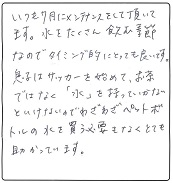 いつも7月にメンテナンスをして頂いて
ます。水をたくさん飲む季節
なのでタイミング的にとっても良いです。
息子はサッカーを始めて、お茶
ではなく「水」を持っていかない
といけないのでわざわざペットボ
トルの水を買う必要もなくとても
助かっています。